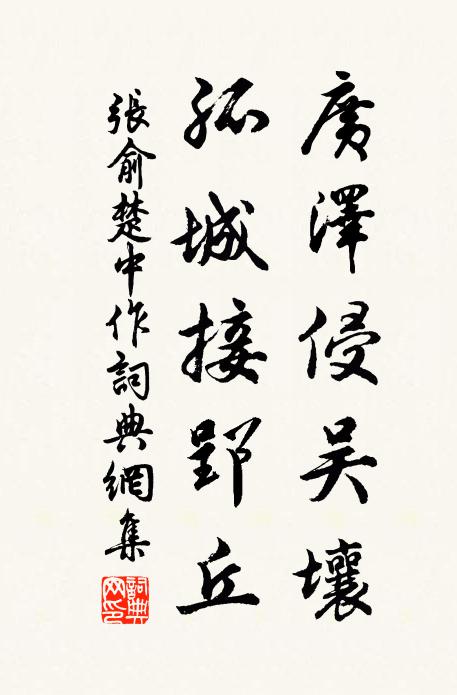 廣澤侵吴壤
孤城接郢丘
張俞楚中作詞典網集
詞典